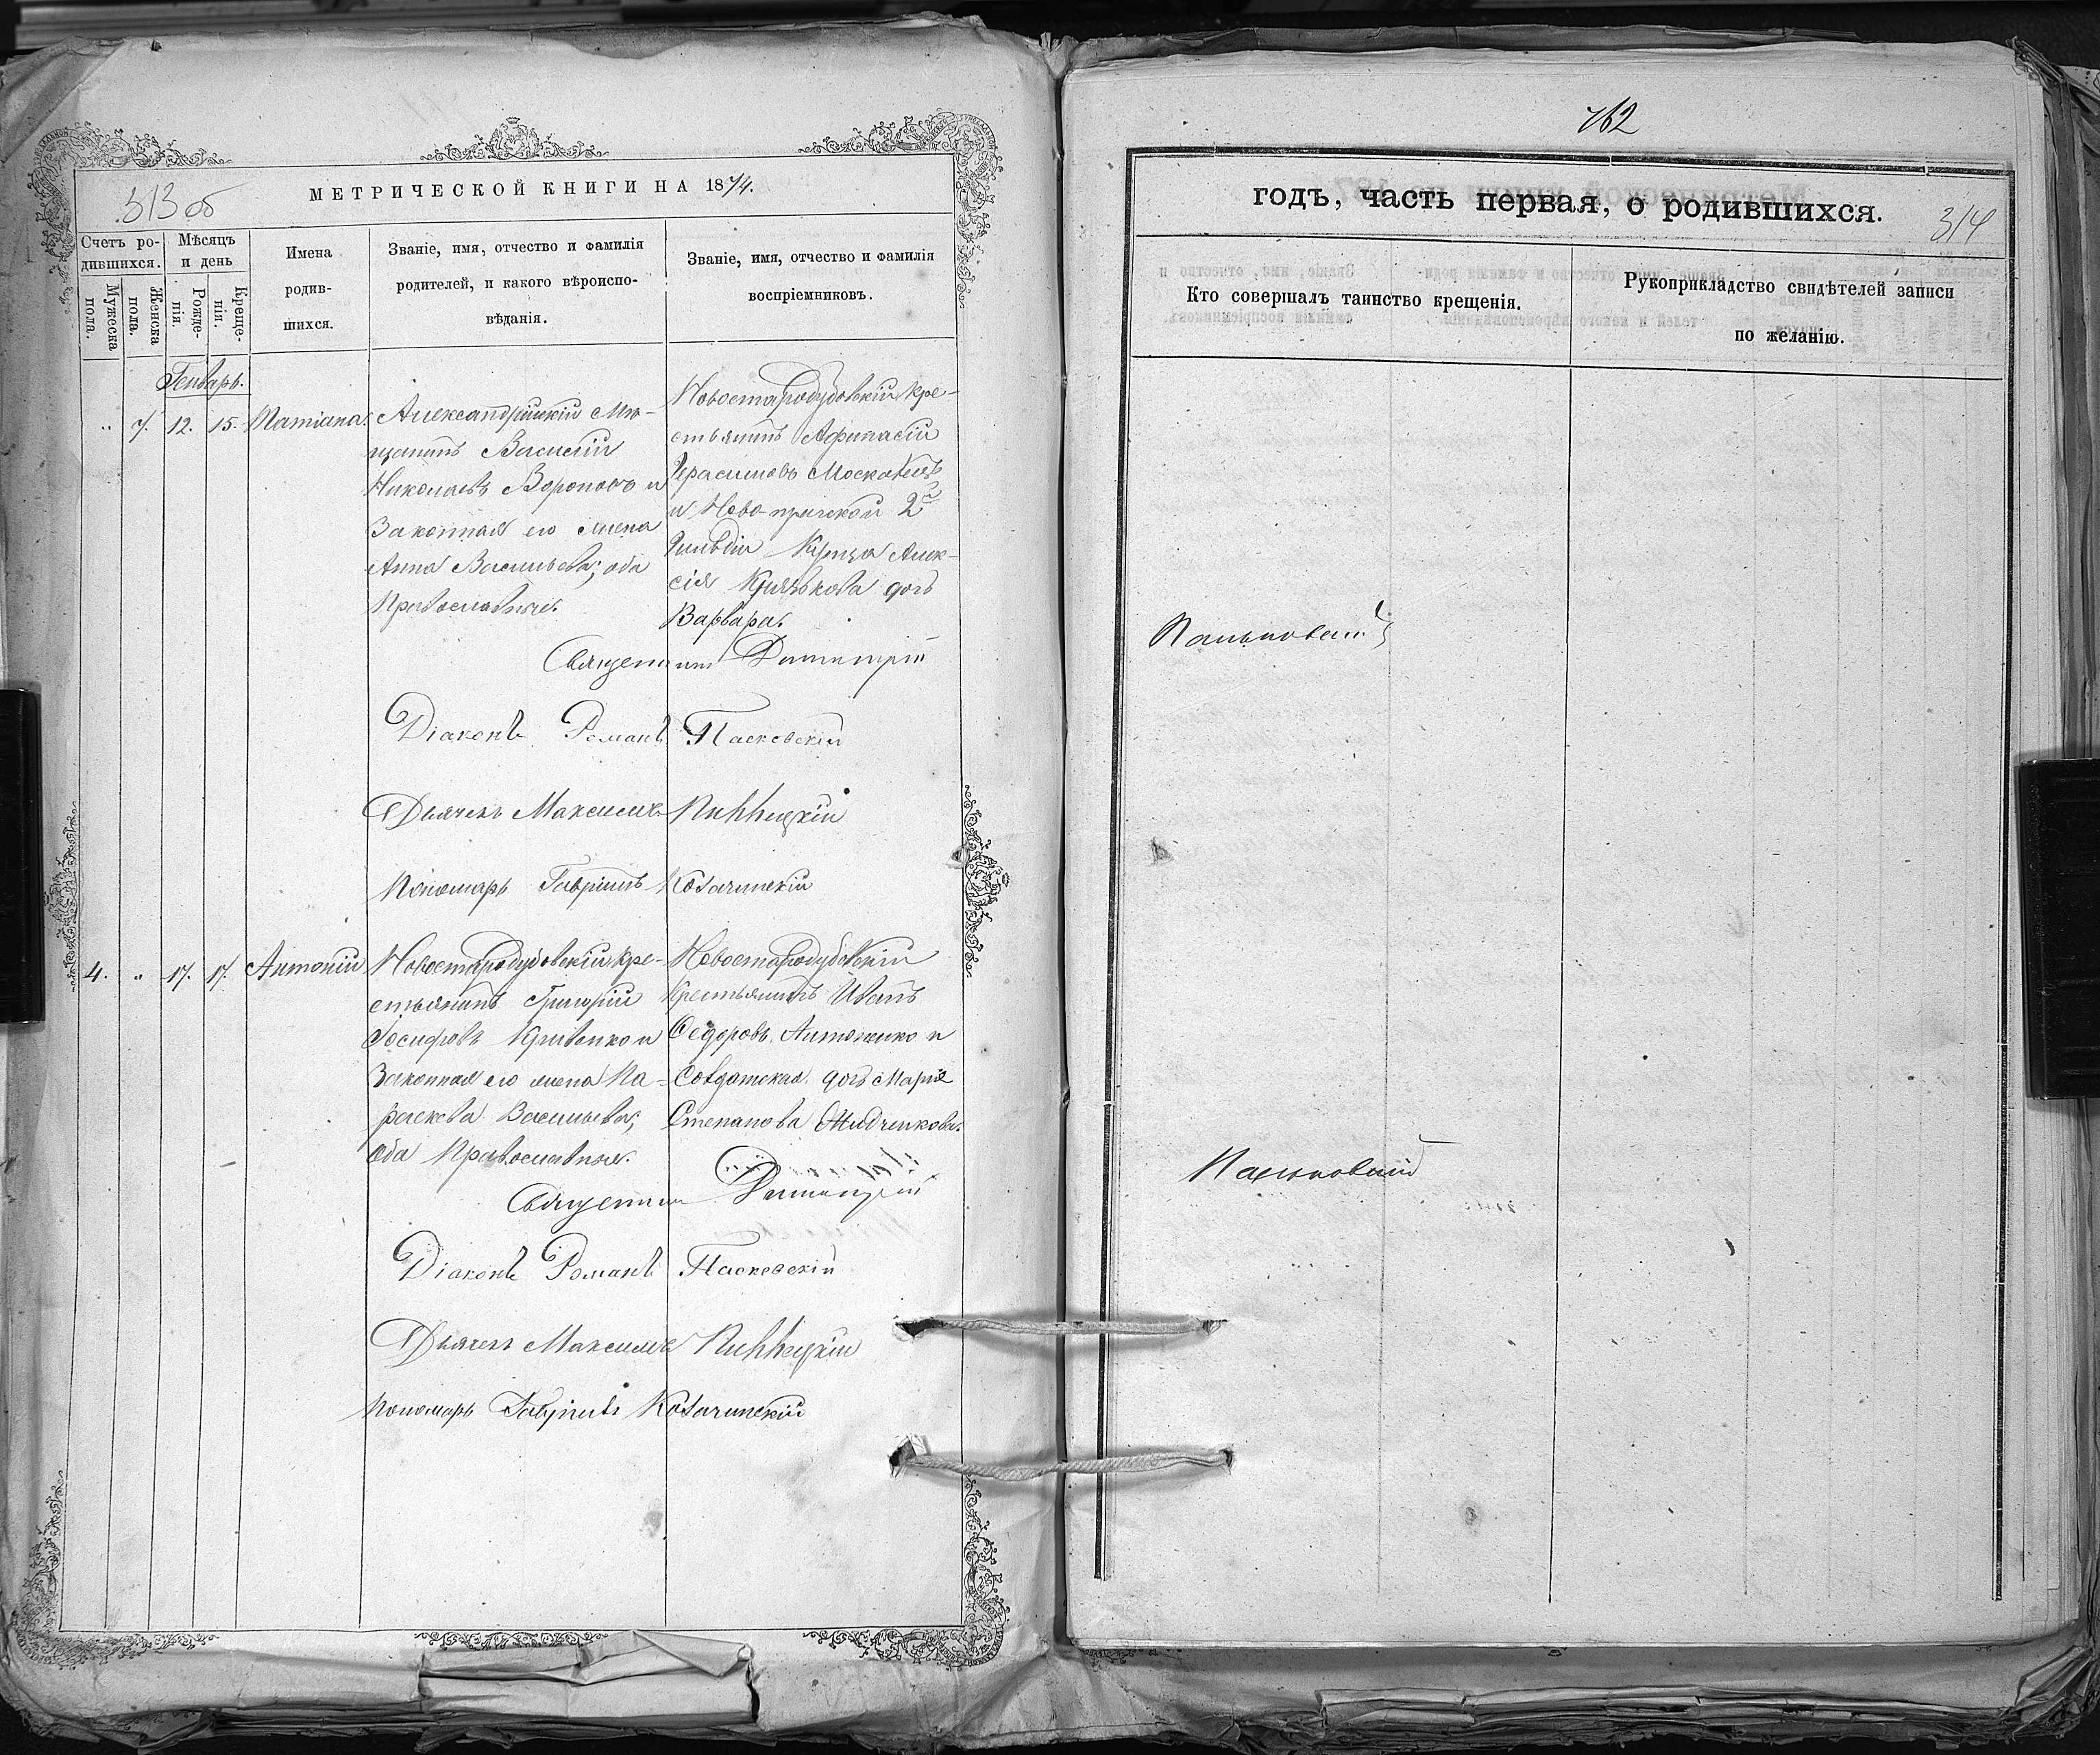 313 об
МЕТРИЧЕСКОЙ КНИГИ НА 1874.
Счетъ ро-
дившихся.
Мѣсяцъ
и день
Мужеска
пола.
Женска
пола.
Рожде-
нія.
Креще-
нія.
Имена
родив-
шихся.
Званіе, имя, отчество и фамилія
родителей, и какого вѣроиспо-
вѣданія.
Званіе, имя, отчество и фамилія
воспріемниковъ.
Генварь.
" 7. 12. 15. Татіана.
Александрійскій мѣ-
щанинъ Василій
Николаевъ и
Законная его жена
Анна Васильева; оба
Православные.
Новостародубовскій кре-
стьянинъ Афанасій
Герасимовъ
и Ново-пражской 2й
Гильдіи Купца Алек-
сія дочь
Варвара.
Священникъ Димитрій
Діаконъ Романъ Пасковскій
Дьячекъ Максимъ
Пономарь Гавріилъ
4. " 17. 17. Антоній
Новостародубовскій кре-
стьянинъ Григорій
Іосифовъ Кривенко и
Законная его жена Па-
раскева Васильева;
оба Православные.
Новостародубовскій
Крестьянинъ Иванъ
Ѳедоровъ и
Солдатская дочь Марія
Степанова
Священникъ Димитрій
Діаконъ Романъ Пасковскій
Дьячекъ Максимъ
Пономарь Гавріилъ
762
годъ, часть первая, о родившихся.
314
Кто совершалъ таинство крещенія.
Рукоприкладство свидѣтелей записи
по желанію.